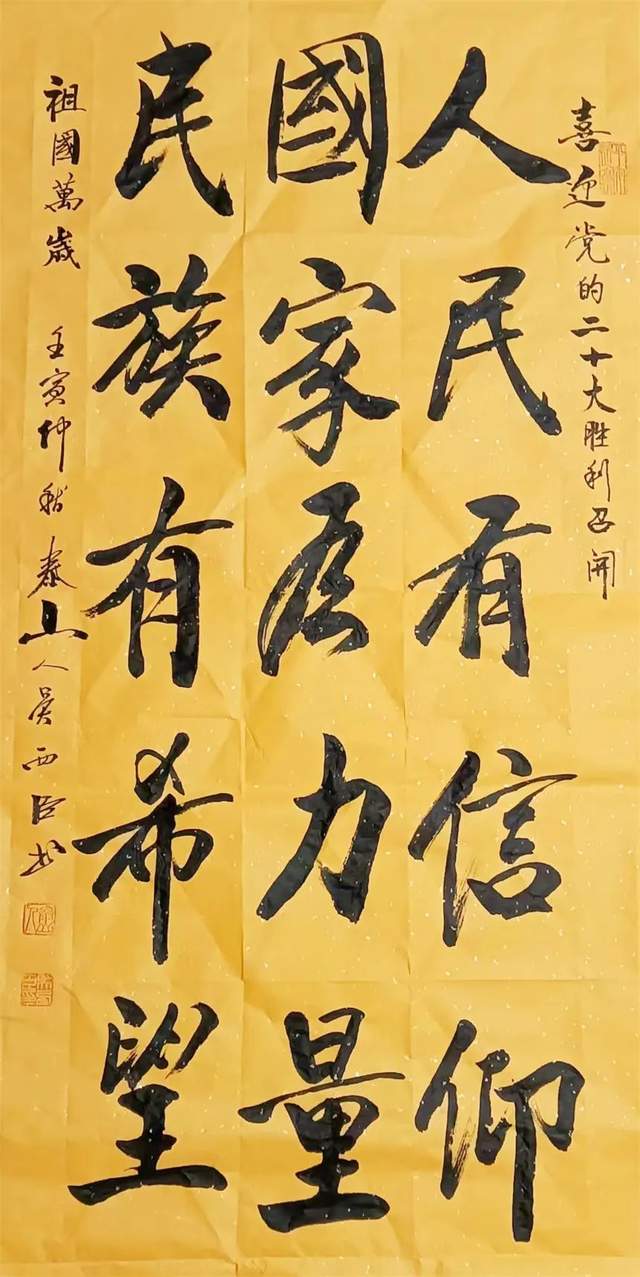 喜迎党的二十大胜利召开
人民有信仰
國家有力量
民族有希望
祖國萬歲 壬寅仲秋 泰山人吴西臣书